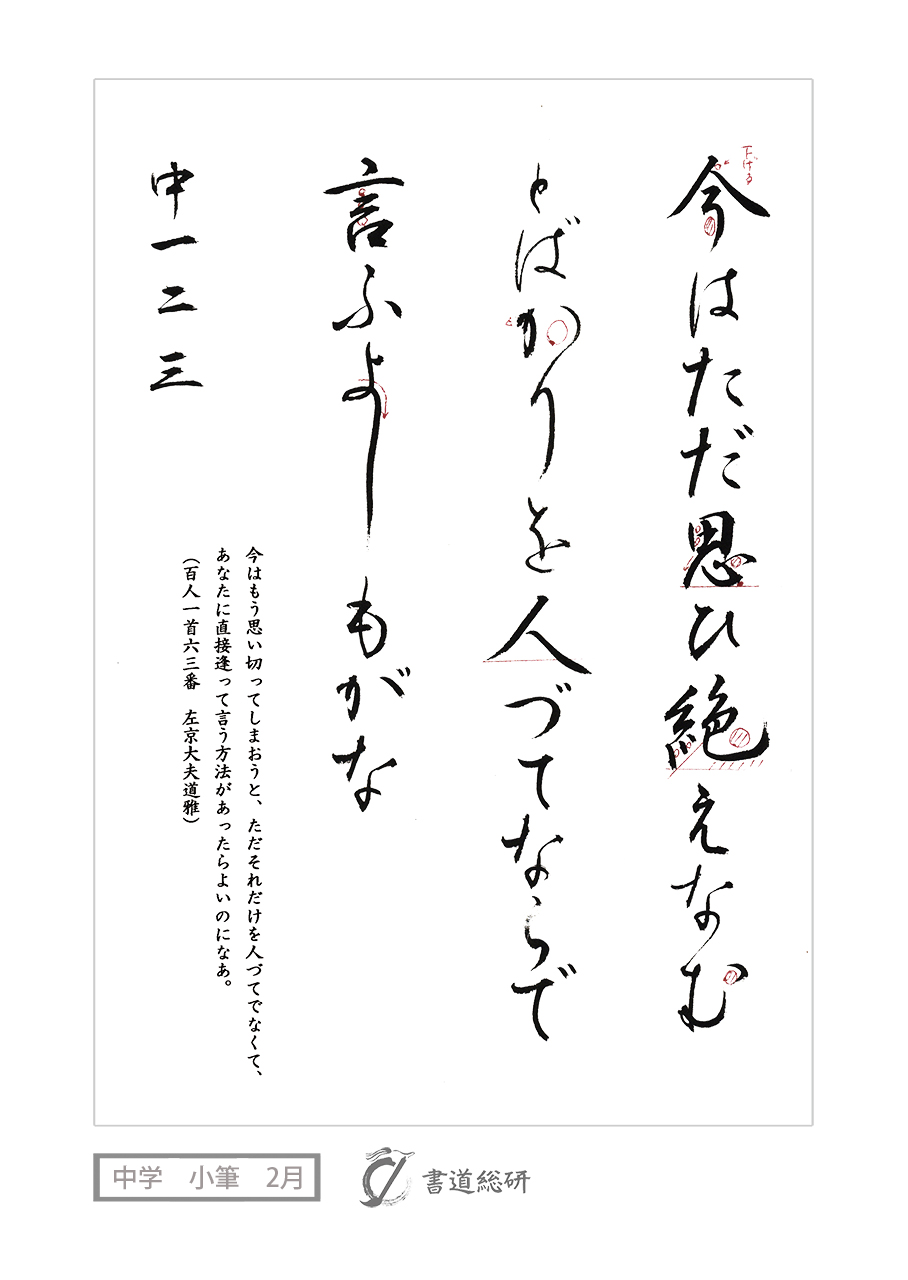 今はただ思ひ絶えなむ
とばかりを人づてならで
言ふよしもがな
中一二三
下げる
と
今はもう思い切ってしまおうと、ただそれだけを人づてでなくて、
あなたに直接逢って言う方法があったらよいのになあ。
（百人一首六三番　左京大夫道雅）
中学　小筆　2月
書道総研